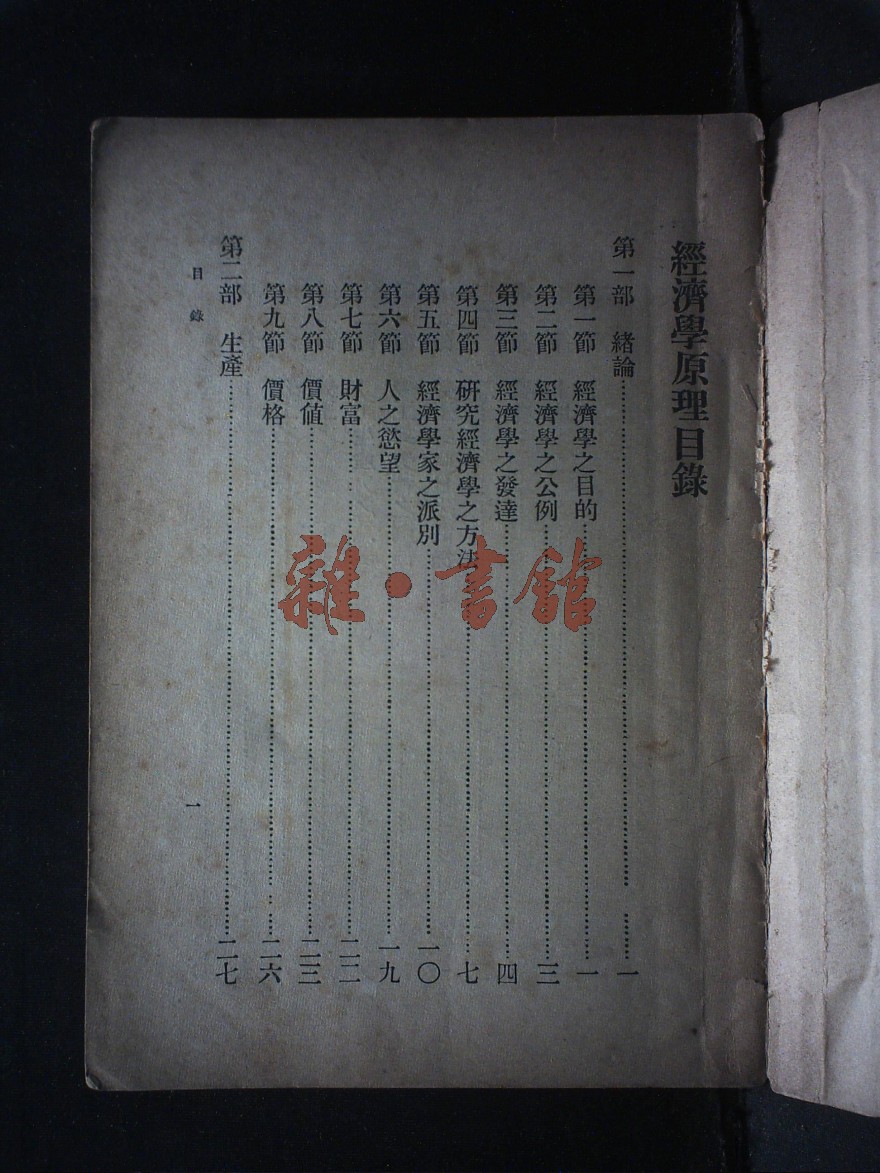 經濟學原理目錄
第一部 緒論……一
第一節 經濟學之目的……一
第二節 經濟學之公例……三
第三節 經濟學之發達……四
第四節 研究經濟學之方法……七
第五節 經濟學家之派別……一〇
第六節 人之慾望……一九
第七節 財富……二二
第八節 價値……二三
第九節 價格……二六
第二部 生產……二七
目錄
一
雜·書館